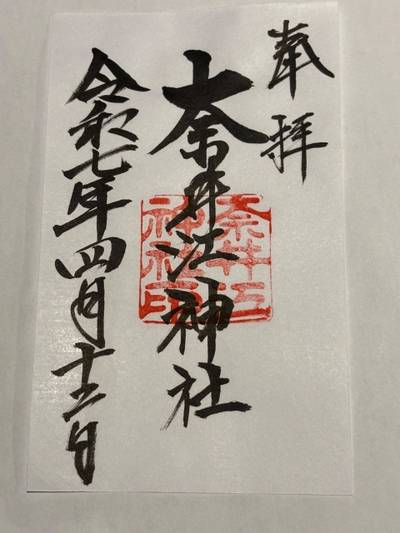 奉拝
奈井江神社
奈井江
神社印
令和七年四月十三日